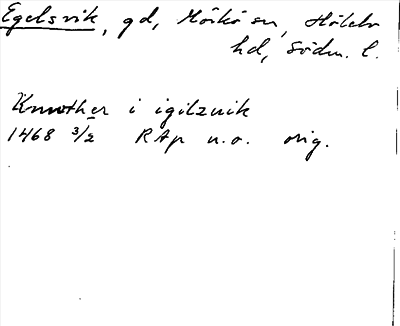 Egelsvik, gd, Mörkö sn, Hölebo
hd, Södm. l.
Knwther i igilzuik
1468 3/2 RAp u.o. orig.